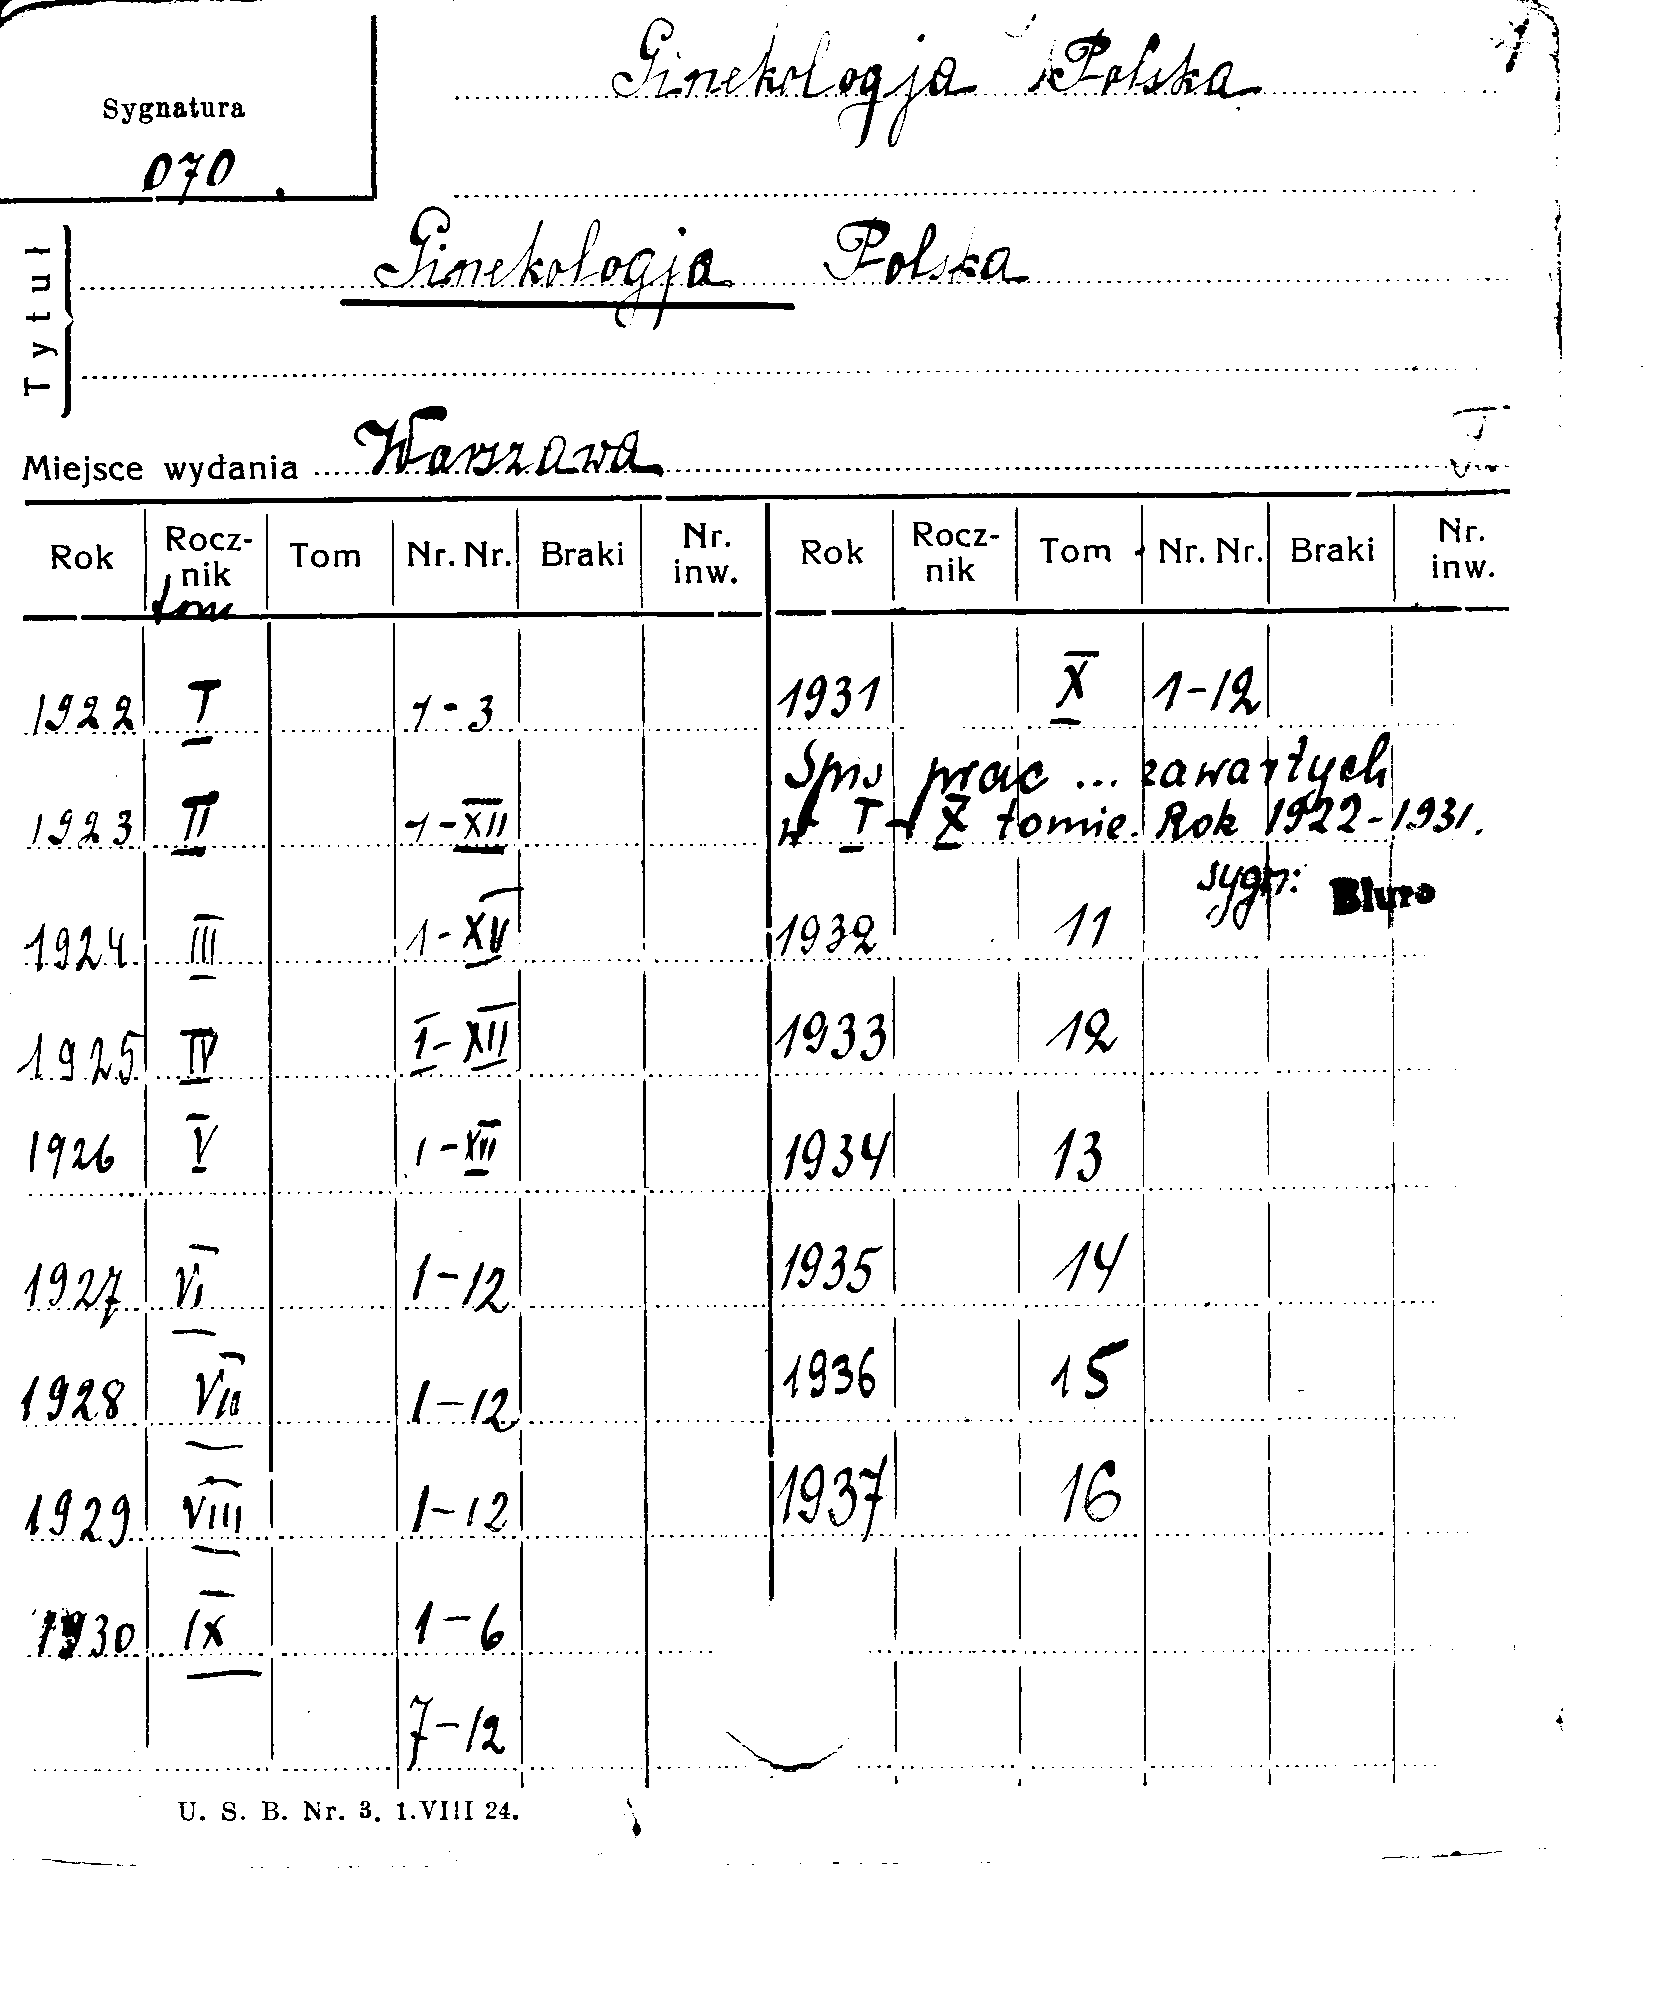 Ginekologja Polska
Sygnatura
070.
Tytuł
Ginekologja Polska
Miejsce wydania Warszawa
Rok Rocz-nik tom Tom Nr. Nr. Braki Nr. inw. Rok Rocz-nik Tom Nr. Nr. Braki Nr. inw.
1922 I 1-3 1931 X 1-12
Spis prac ... zawartych
1923 II 1-XII w I-X tomie. Rok 1922-1931.
sygn: Biuro
1924 III 1-XV 1932 11
1925 IV I-XII 1933 12
1926 V 1-XII 1934 13
1927 VI 1-12 1935 14
1928 VII 1-12 1936 15
1929 VIII 1-12 1937 16
1930 IX 1-6
7-12
U. S. B. Nr. 3. 1.VIII 24.